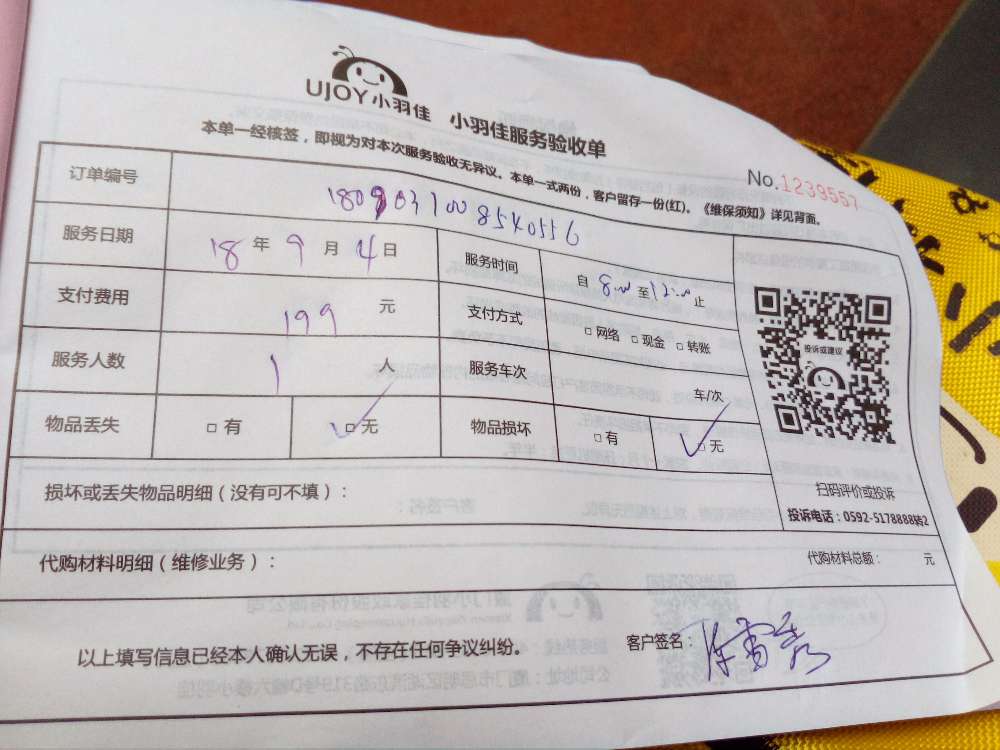 UJOY小羽佳 小羽佳服务验收单
本单一经核签，即视为对本次服务验收无异议。本单一式两份，客户留存一份(红)。《维保须知》详见背面。
No.1239557
订单编号 1809031008540556
服务日期 18年9月4日 服务时间 自8:00至12:00止
支付费用 199元 支付方式 □网络 □现金 □转账
服务人数 1人 服务车次 车/次
物品丢失 □有 □无 物品损坏 □有 □无
投诉或建议
扫码评价或投诉
投诉电话：0592-5178888转2
损坏或丢失物品明细（没有可不填）：
代购材料明细（维修业务）： 代购材料总额： 元
以上填写信息已经本人确认无误，不存在任何争议纠纷。 客户签名：